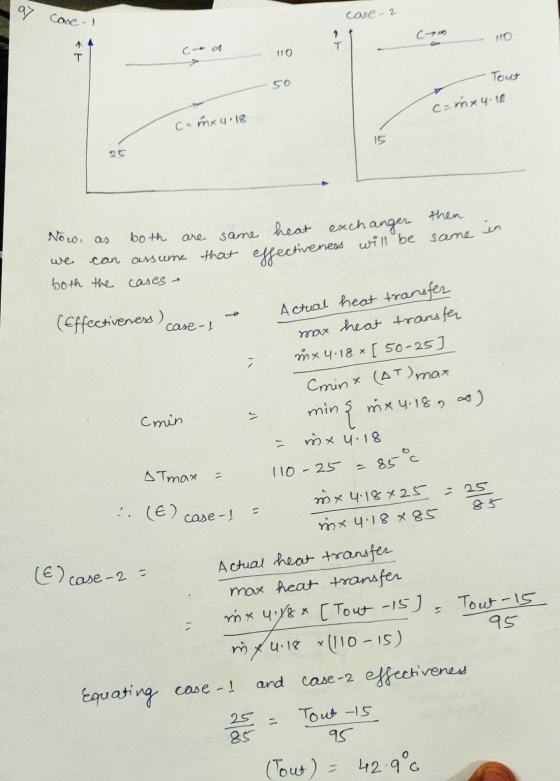 9) Case-1
Case-2
↑
T
C→∞
110
50
C = ṁ×4.18
25
↑
T
C→∞
110
Tout
C = ṁ×4.18
15
Now, as both are same heat exchanger then
we can assume that effectiveness will be same in
both the cases →
(Effectiveness) case-1 → Actual heat transfer
max heat transfer
= ṁ×4.18×[50-25]
Cmin × (ΔT)max
Cmin = min { ṁ×4.18, ∞)
= ṁ×4.18
ΔTmax = 110-25 = 85°C
∴ (E) case-1 = ṁ×4.18×25 / ṁ×4.18×85 = 25/85
(E) case-2 = Actual heat transfer
max heat transfer
= ṁ×4.18×[Tout-15] / ṁ×4.18×(110-15) = Tout-15 / 95
Equating case-1 and case-2 effectiveness
25/85 = Tout-15 / 95
(Tout) = 42.9°C